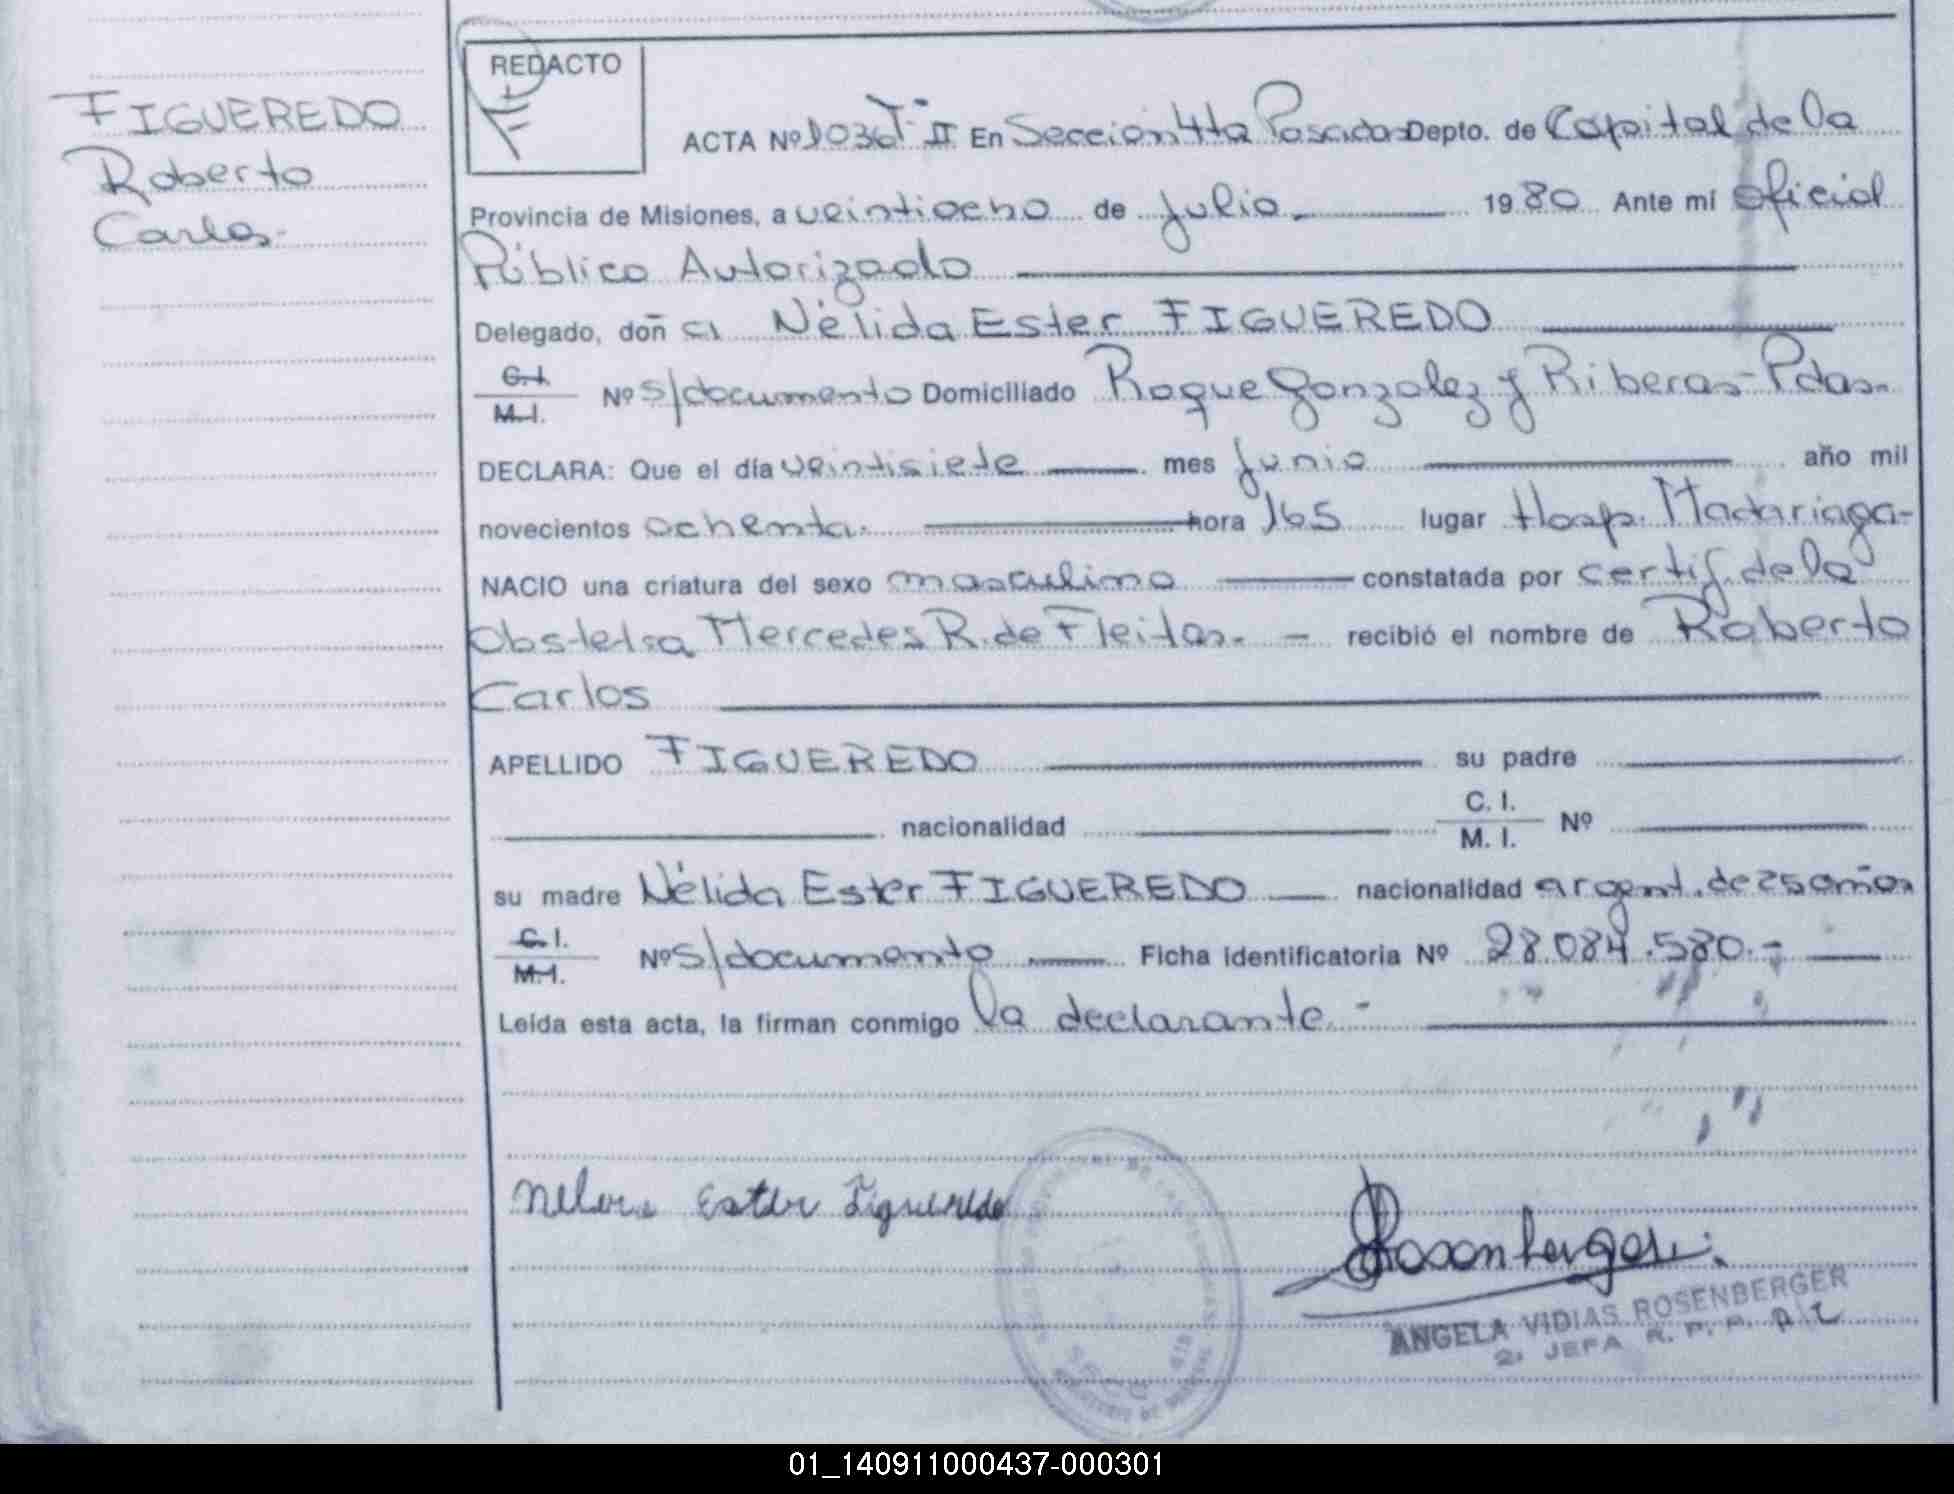 FIGUEREDO
Roberto
Carlos.
REDACTO
ACTA Nº 1036 T- II En Sección 4ta Posadas Depto. de Capital de la
Provincia de Misiones, a veintiocho de julio. 1980 Ante mí Oficial
Público Autorizado
Delegado, doña Nélida Ester FIGUEREDO
C. I.
M. I. Nº S/documento Domiciliado Roque Gonzalez y Riberas - Pdas.
DECLARA: Que el día veintisiete mes junio año mil
novecientos ochenta. hora 165 lugar Hosp. Madariaga-
NACIO una criatura del sexo masculino constatada por certif. de la
Obstetra Mercedes R. de Fleitas. - recibió el nombre de Roberto
Carlos
APELLIDO FIGUEREDO su padre
nacionalidad C. I.
M. I. Nº
su madre Nélida Ester FIGUEREDO nacionalidad argent. de 25 años
C. I.
M. I. Nº S/documento Ficha identificatoria Nº 28.084.580.-
Leída esta acta, la firman conmigo la declarante.-
Ester Figueredo
Rosenberger
ANGELA VIDIAS ROSENBERGER
2. JEFA R. P. P.
01_140911000437-000301